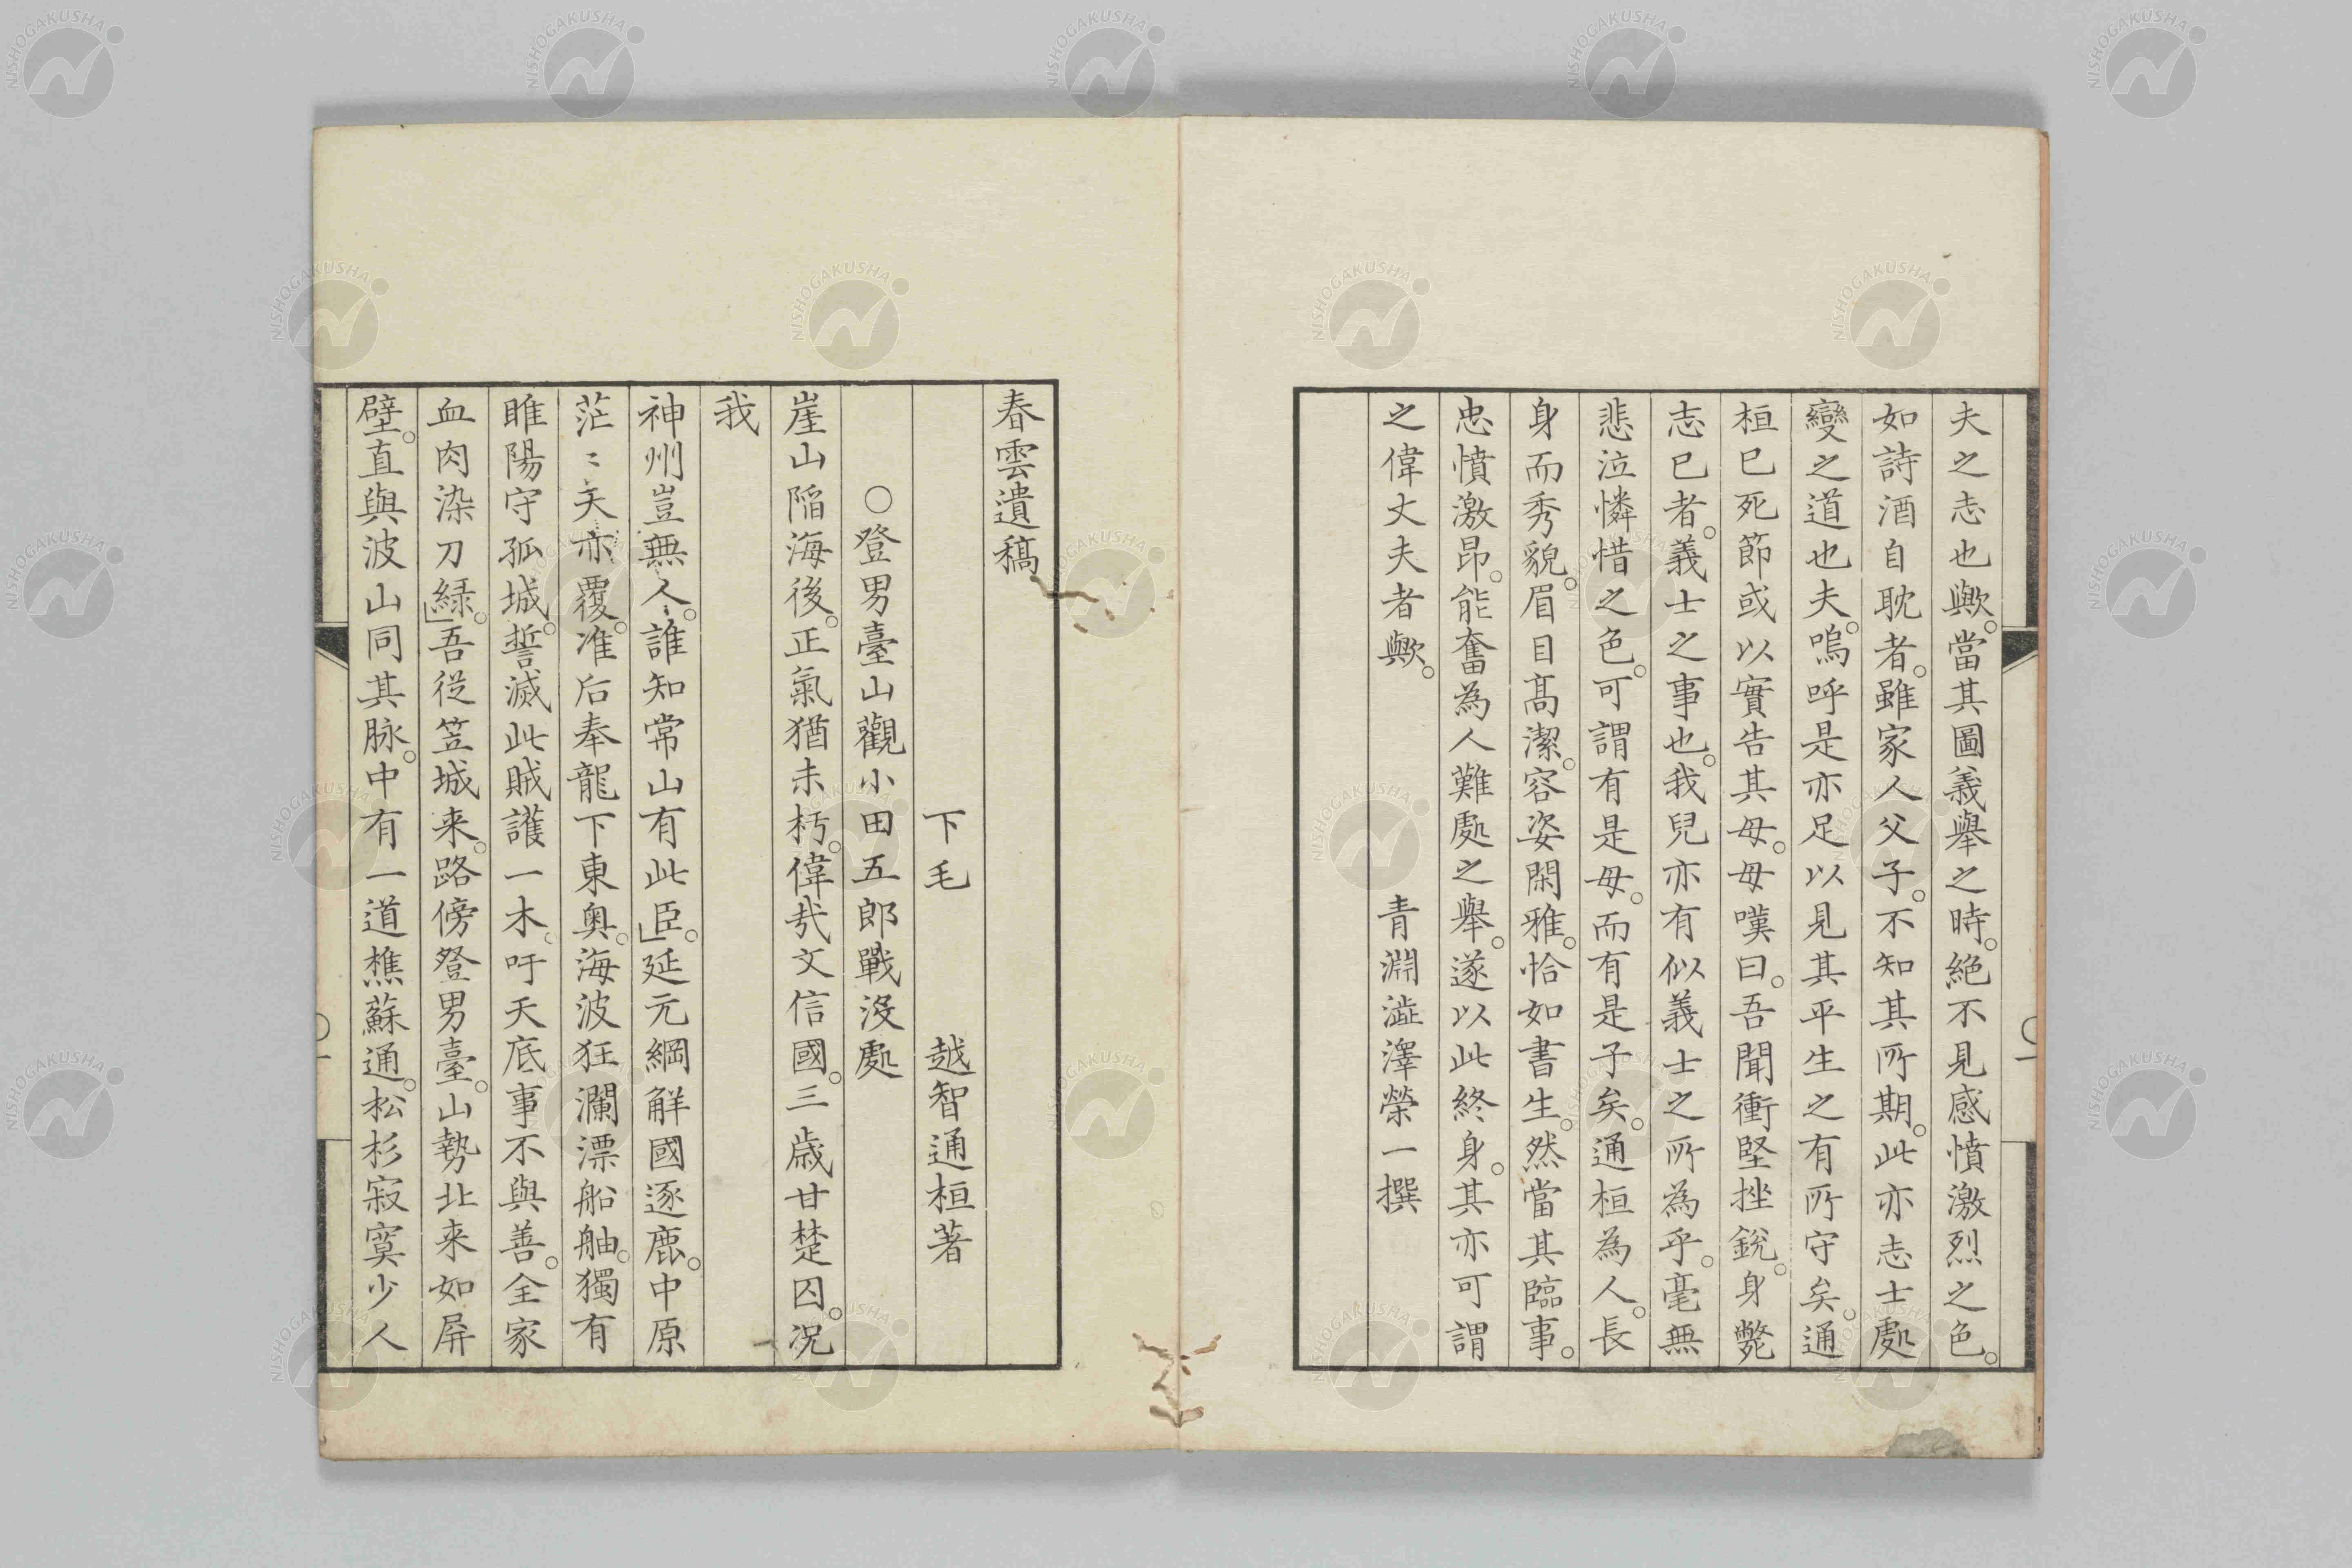 夫之志也歟。當其圖義舉之時。絶不見感憤激烈之色。
如詩酒自耽者。雖家人父子。不知其所期。此亦志士處
變之道也夫。嗚呼是亦足以見其平生之有所守矣。通
桓已死節或以實告其母。母嘆曰。吾聞衝堅挫銳。身斃
志已者。義士之事也。我兒亦有似義士之所為乎。毫無
悲泣憐惜之色。可謂有是母。而有是子矣。通桓為人。長
身而秀貌。眉目高潔。容姿閑雅。恰如書生。然當其臨事。
忠憤激昂。能奮為人難處之舉。遂以此終身。其亦可謂
之偉丈夫者歟。
青淵澁澤榮一撰
春雲遺稿
下毛 越智通桓著
○登男臺山觀小田五郎戰沒處
崖山陷海後。正氣猶未朽。偉哉文信國。三歲甘楚囚。況
我
神州豈無人。誰知常山有此臣。」延元綱解國逐鹿。中原
茫〻天亦覆。准后奉龍下東奧。海波狂瀾漂船舳。獨有
睢陽守孤城。誓滅此賊護一木。吁天底事不與善。全家
血肉染刀緑。」吾從笠城来。路傍登男臺。山勢北来如屏
壁。直與波山同其脉。中有一道樵蘇通。松杉寂寞少人
NISHOGAKUSHA